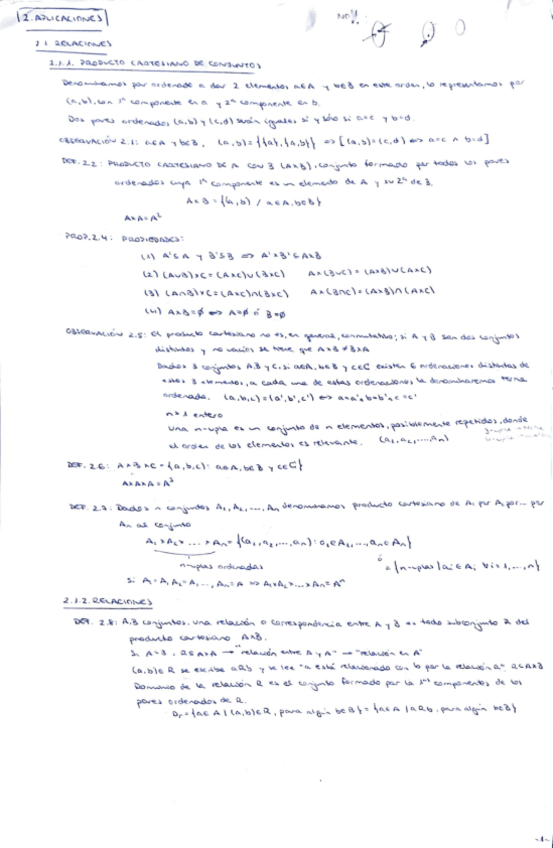 2. APLICACIONES
2.1. RELACIONES
2.1.1. PRODUCTO CARTESIANO DE CONJUNTOS
Denominamos par ordenado a dar 2 elementos a∈A y b∈B en este orden, lo representamos por
(a,b), con 1ª componente en a y 2ª componente en b.
Dos pares ordenados (a,b) y (c,d) serán iguales si y sólo si a=c y b=d.
OBSERVACIÓN 2.1: a∈A y b∈B, (a,b)={{a},{a,b}} => [(a,b)=(c,d) <=> a=c ∧ b=d]
DEF. 2.2: PRODUCTO CARTESIANO DE A CON B (A×B), conjunto formado por todos los pares
ordenados cuya 1ª componente es un elemento de A y su 2ª de B.
A×B={(a,b) / a∈A, b∈B}
A×A=A²
PROP. 2.4: PROPIEDADES:
(1) A'⊆A y B'⊆B <=> A'×B'⊆A×B
(2) (A∪B)×C=(A×C)∪(B×C) A×(B∪C)=(A×B)∪(A×C)
(3) (A∩B)×C=(A×C)∩(B×C) A×(B∩C)=(A×B)∩(A×C)
(4) A×B=∅ <=> A=∅ ó B=∅
OBSERVACIÓN 2.5: El producto cartesiano no es, en general, conmutativo; si A y B son dos conjuntos
distintos y no vacíos se tiene que A×B≠B×A
Dados 3 conjuntos A,B y C, si a∈A, b∈B y c∈C existen 6 ordenaciones distintas de
estos 3 elementos, a cada una de estas ordenaciones la denominaremos terna
ordenada. (a,b,c)=(a',b',c') <=> a=a', b=b', c=c'
n>1 entero
Una n-upla es un conjunto de n elementos, posiblemente repetidos, donde
el orden de los elementos es relevante. (a₁,a₂,...,aₙ)
DEF. 2.6: A×B×C={(a,b,c): a∈A, b∈B y c∈C}
A×A×A=A³
DEF. 2.7: Dados n conjuntos A₁,A₂,...,Aₙ denominamos producto cartesiano de A₁ por A₂ por... por
Aₙ al conjunto
A₁×A₂×...×Aₙ={(a₁,a₂,...,aₙ): a₁∈A₁,...,aₙ∈Aₙ}
n-uplas ordenadas ó ={n-uplas / aᵢ∈Aᵢ ∀i=1,...,n}
Si A₁=A, A₂=A,..., Aₙ=A => A₁×A₂×...×Aₙ=Aⁿ
2.1.2. RELACIONES
DEF. 2.8: A,B conjuntos. Una relación o correspondencia entre A y B es todo subconjunto R del
producto cartesiano A×B.
Si A=B, R⊆A×A → "relación entre A y A" → "relación en A"
(a,b)∈R se escribe aRb y se lee "a está relacionado con b por la relación R" R⊆A×B
Dominio de la relación R es el conjunto formado por la 1ª componentes de los
pares ordenados de R.
Dr={a∈A / (a,b)∈R, para algún b∈B}={a∈A / aRb, para algún b∈B}
-1-